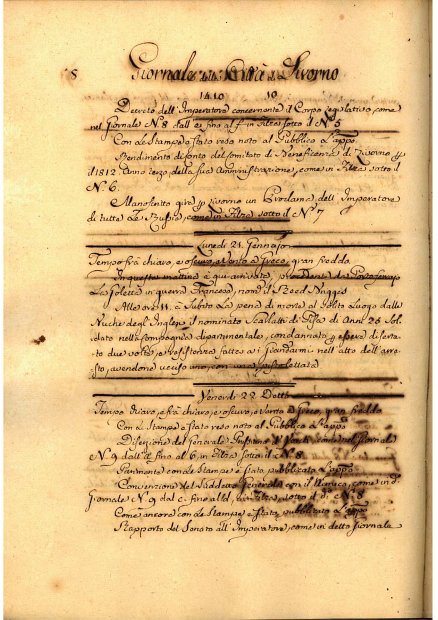 8 Giornale della Città di Livorno
1810 10
Decreto dell'Imperatore concernente il Corpo legislativo, come
nel Giornale N. 8 dall' fino al f in filza sotto il N. 5
Con le Stampe è stato reso noto al Pubblico L'appo
Rendimento di conto del Comitato di Beneficenza di Livorno p
il 1812 Anno terzo della sua Amministrazione, come in filza sotto il
N. 6.
Manoscritto gira p Livorno un Proclama dell' Imperatore
di tutte le Russie, come in filza sotto il N. 7
Lunedì 21 Gennajo
Tempo frà chiaro, e oscuro, e Vento a Greco, gran freddo
In questa mattina è qui arrivata, proveniente da
La Goletta in guerra Francese, nom.
Alle ore 11. à Subito la pena di morte al solito Luogo dalle
Ruche degl'Inglesi il nominato Scarlatti di Pisa di Anni 26 Sol
dato nella Compagnia dipartimentale, condannato p essere diserta
to due volte, e resistenza fatta a i Giandarmi nell'atto dell'arre
sto, avendone ucciso uno, con una pistolettata
Venerdì 22 Detto
Tempo chiaro, e frà chiaro, e oscuro, e Vento a Greco, gran freddo
Con le Stampe è stato reso noto al Pubblico L'appo
Diserzione del Generale Prussiano come nel Giornale
N. 9 dall' fino al 6, in filza sotto il N. 8
Parimente con le Stampe è stata pubblicata L'appa
Convenzione del Suddetto Generale con il come in d
Giornale N. 9 dal c. fino al d, in filza sotto il d. N. 8
Come ancora con le Stampe è stato pubblicato L'appo
Rapporto del Senato all'Imperatore, come in detto Giornale